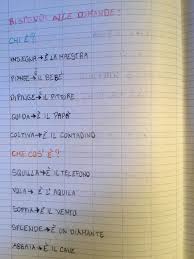 RISPONDI ALLE DOMANDE:
CHI È?
INSEGNA → È LA MAESTRA
PIANGE → È IL BEBÈ
DIPINGE → È IL PITTORE
GUIDA → È IL PAPÀ
COLTIVA → È IL CONTADINO
CHE COS'È?
SQUILLA → È IL TELEFONO
VOLA → È L'AQUILA
SOFFIA → È IL VENTO
SPLENDE → È UN DIAMANTE
ABBAIA → È IL CANE